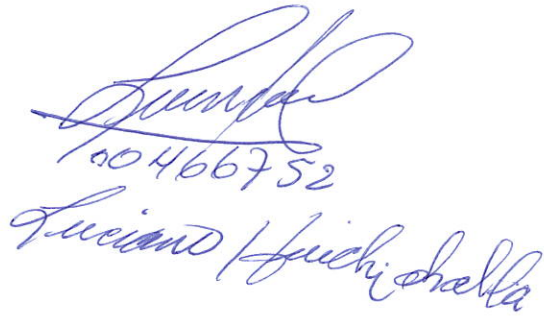 00466752
Luciano Huichi Challa